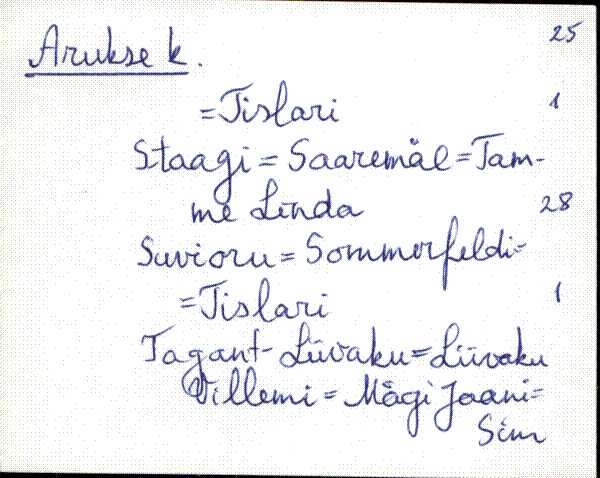 25
Arukse k.
=Tislari 1
Staagi = Saaremäe = Tam-
me Linda 28
Suvioru = Sommerfeldi=
=Tislari 1
Tagant-Liivaku=Liivaku
Villemi = Mägi Jaani=
Sim